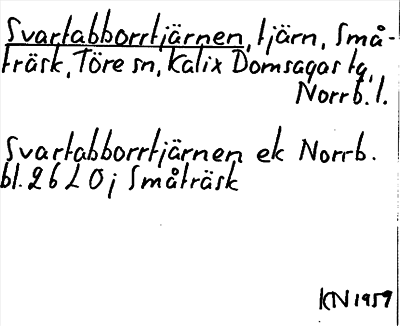 Svartabborrtjärnen, tjärn, Små-
träsk, Töre sn, Kalix Domsagas tg,
Norrb. l.
Svartabborrtjärnen ek Norrb.
bl. 26 L 0 j Småträsk
KN 1959